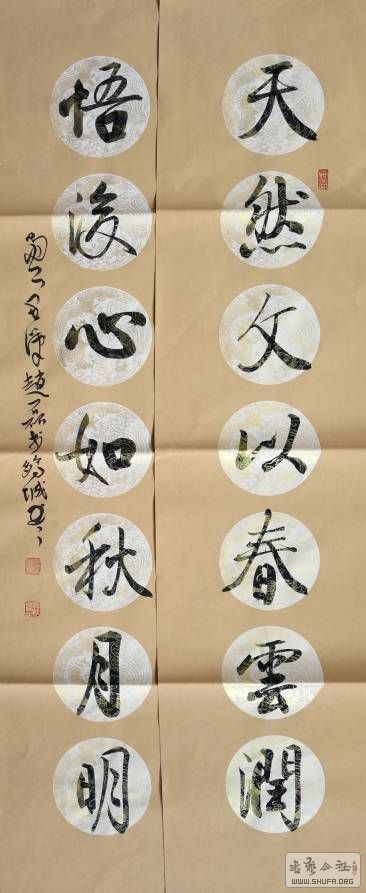 天然文以春雲潤
悟後心如秋月明
書藝公社
WWW.SHUFA.ORG